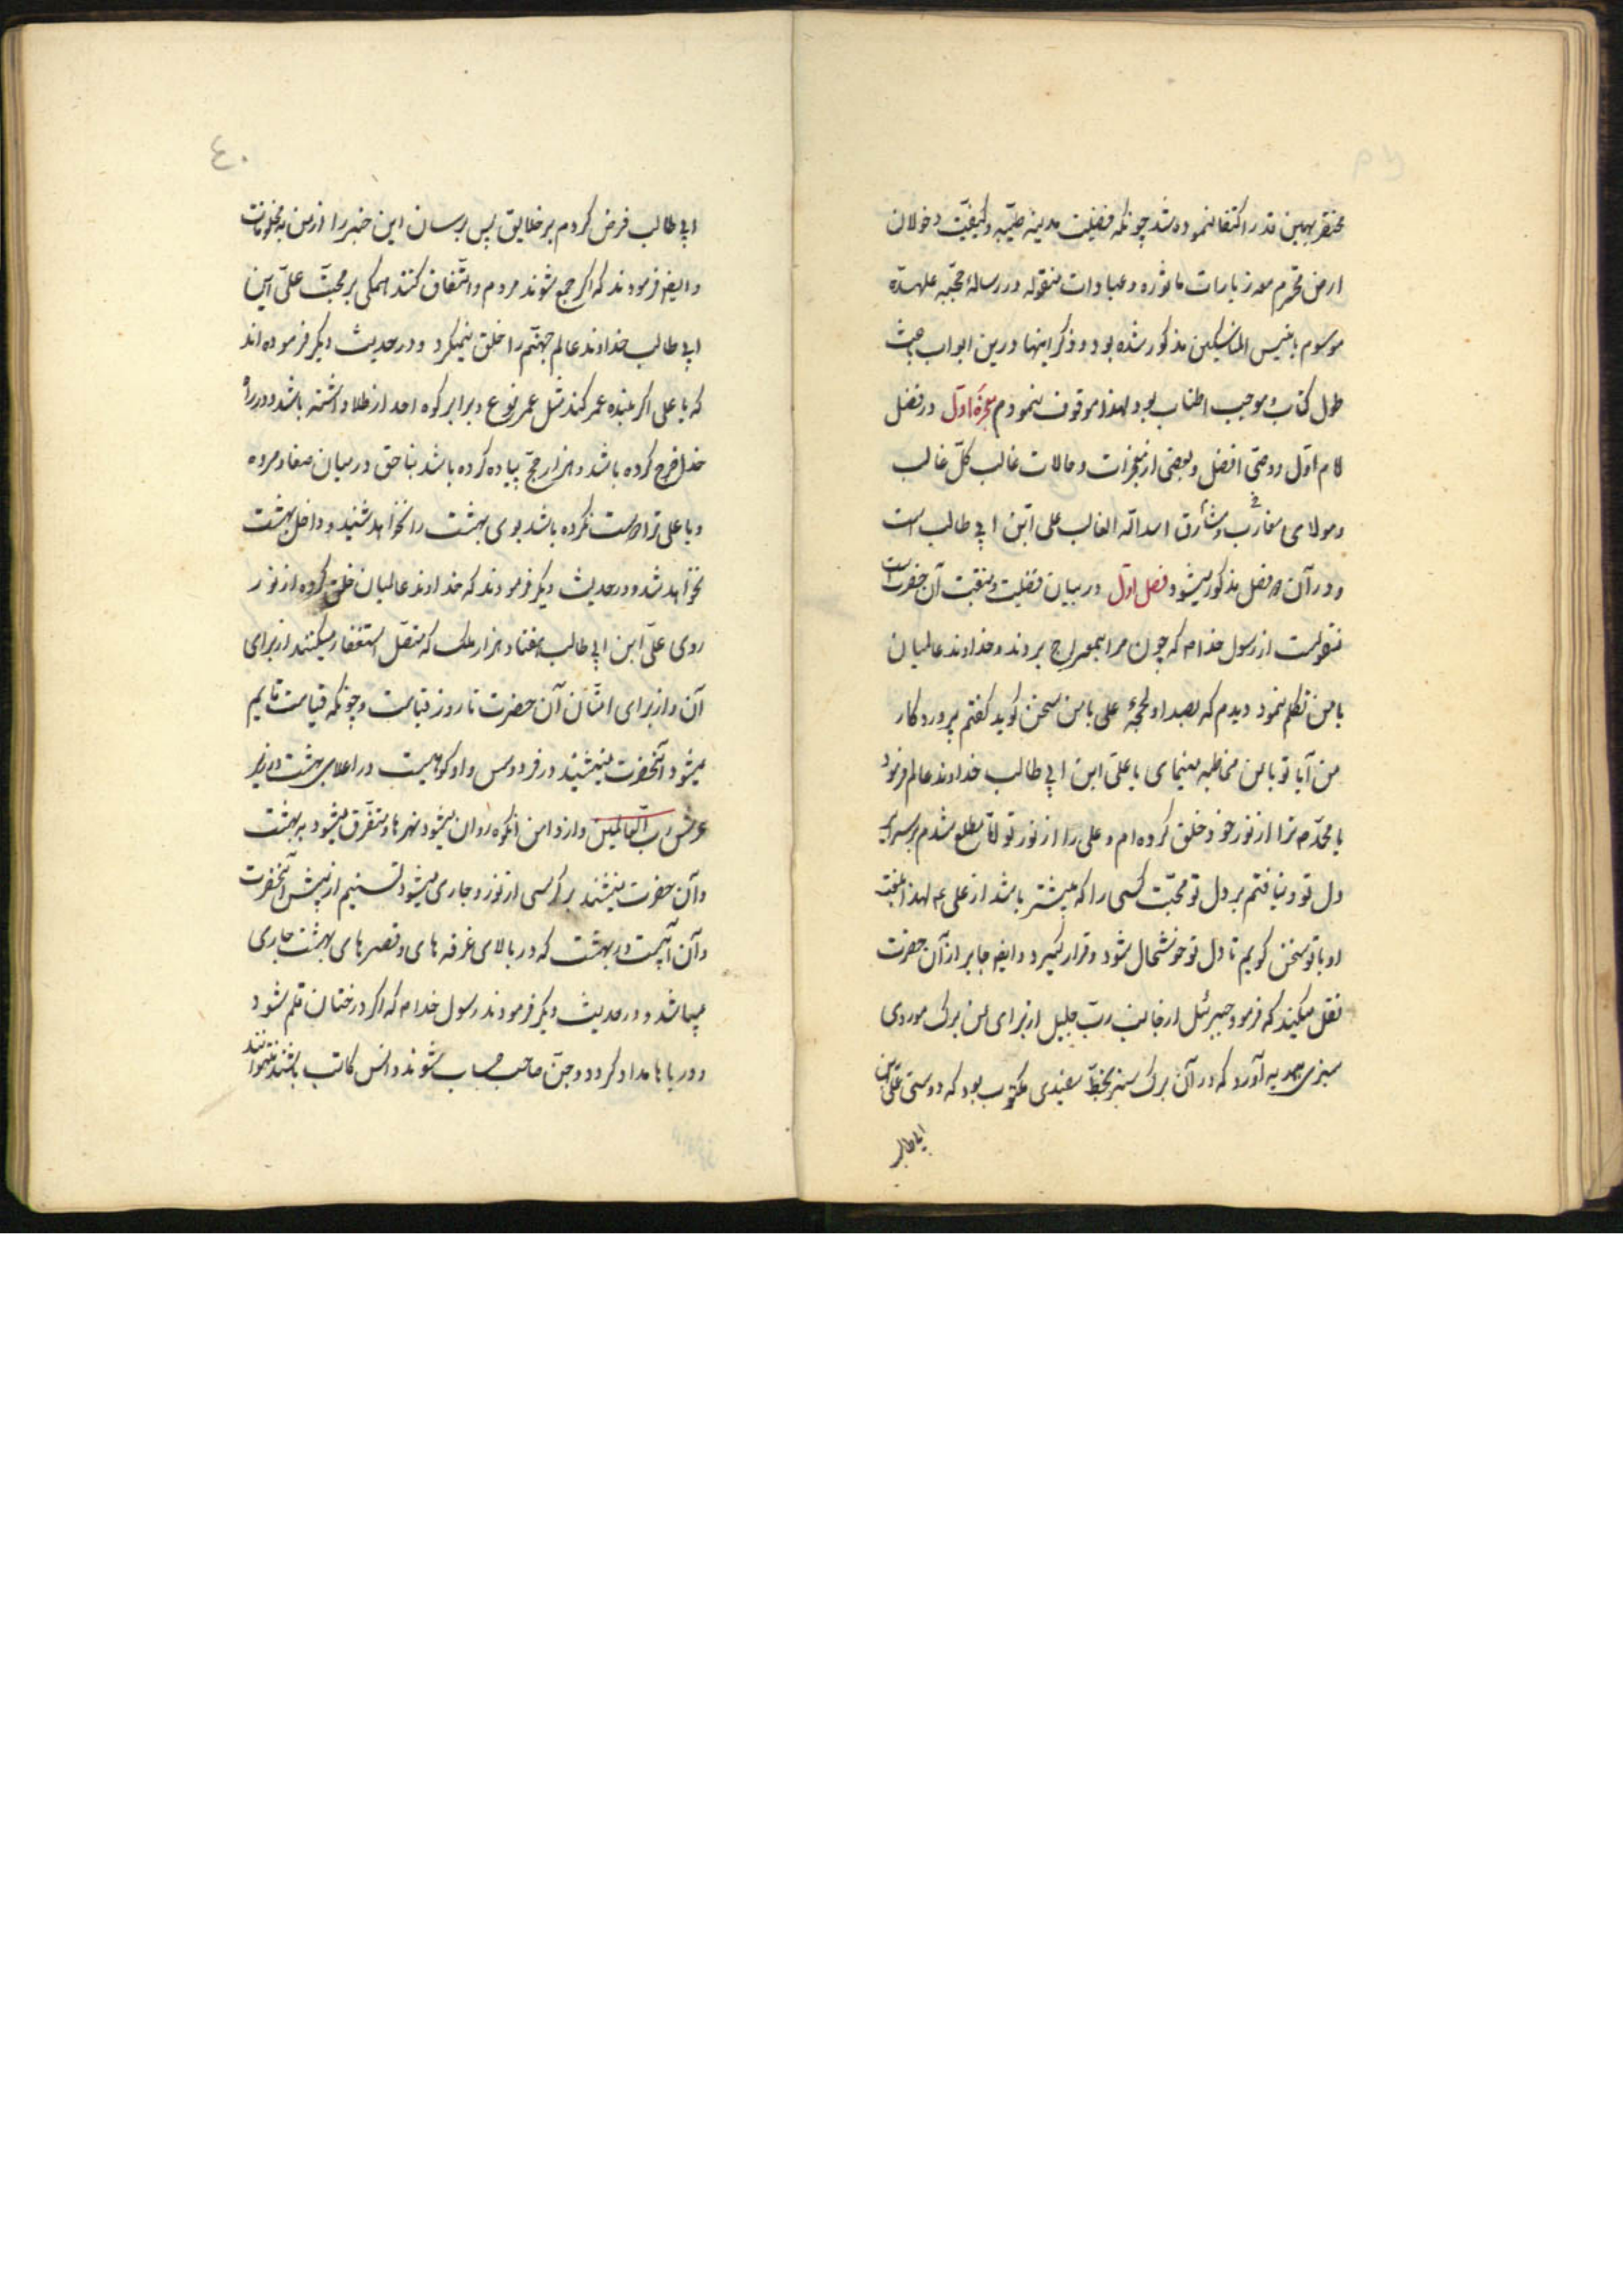 مختصر بهمین قدر اکتفا نموده شد چونکه فضیلت مدینه طیّبه و کیفیّت دخول ان
ارض محترم معه زیارات ماثوره و عبادات منقوله در رسالهٔ حجّیه علیحدّه
موسوم بانیس الناسکین مذکور شده بود و ذکر اینها درین ابواب باعث
طول کتاب و موجب اطناب بود لهذا موقوف نمودم حجرهٔ اوّل در فضل
امام اوّل و وصیّ افضل و بعضی از معجزات و حالات غالب کلّ غالب
و مولای مغارب و مشارق اسد اللّه الغالب علی ابن ابی طالب است
و در آن فصل مذکور میشود فصل اوّل در بیان فضیلت و منقبت آن حضرت است
منقولست از رسول خدا ص که چون مرا بمعراج بردند و خداوند عالمیان
با من تکلم نمود دیدم که بصدا و لهجهٔ علی با من سخن کوید کفتم پروردکار
من آیا تو با من مخاطبه مینمای یا علیّ ابن ابی طالب خداوند عالم فرمود
یا محمّد ص ترا از نور خود خلق کرده ام و علی را از نور تو مطلع شدم بر سرایر
دل تو و نیافتم بر دل تو محبّت کسی را که بیشتر باشد از علی ع لهذا بلهجت
او با تو سخن کویم تا دل تو خوشحال شود و قرار کیرد و ایضا جابر از آن حضرت
نقل میکند که فرمود جبرئل از جانب ربّ جلیل از برای من برک موردی
سبزی هدیه آورد که در آن برک سبز بخطّ سفیدی مکتوب بود که دوستی علیّ ابن
ابی طالب
٤٠
ابی طالب فرض کردم بر خلایق پس برسان این خبر را از من به مخلوقات
و ایضا فرمودند که اکر جمع شوند مردم و اتّفاق کنند همکی بر محبّت علیّ ابن
ابی طالب خداوند عالم جهنّم را خلق نمیکرد و در حدیث دیکر فرموده اند
که یا علی اکر بنده عمر کند مثل عمر نوع و برابر کوه احد از طلا داشته باشد و در راه
خدا خرج کرده باشد و هزار حجّ پیاده کرده باشد بناحق در میان صفا و مروه
و یا علی ترا دوست نکرده باشد بوی بهشت را نخواهد شنید و داخل بهشت
نخواهد شد و در حدیث دیکر فرمودند که خداوند عالمیان خلق کرده از نور
روی علیّ ابن ابی طالب هفتاد هزار ملک که متصل استغفار میکنند از برای
آن و از برای آن حضرت تا روز قیامت و چونکه قیامت قایم
میشود آنحضرت مینشیند در فردوس و او کوهیست در اعلای بهشت و زیر
عرش ربّ العالمین و از دامن آنکوه روان میشود نهرها و متفرّق میشود به بهشت
و آن حضرت بنشیند بر کرسی از نور و جاری میشود تسنیم از پیش آنحضرت
و آن آبیست در بهشت که در بالای غرفه های و قصرهای بهشت جاری
میباشد و در حدیث دیکر فرمودند رسول خدا ص که اکر درختان قلم شود
و دریاها مداد کردد و جنّ صاحب حساب شوند و انس کاتب باشند نتوانند